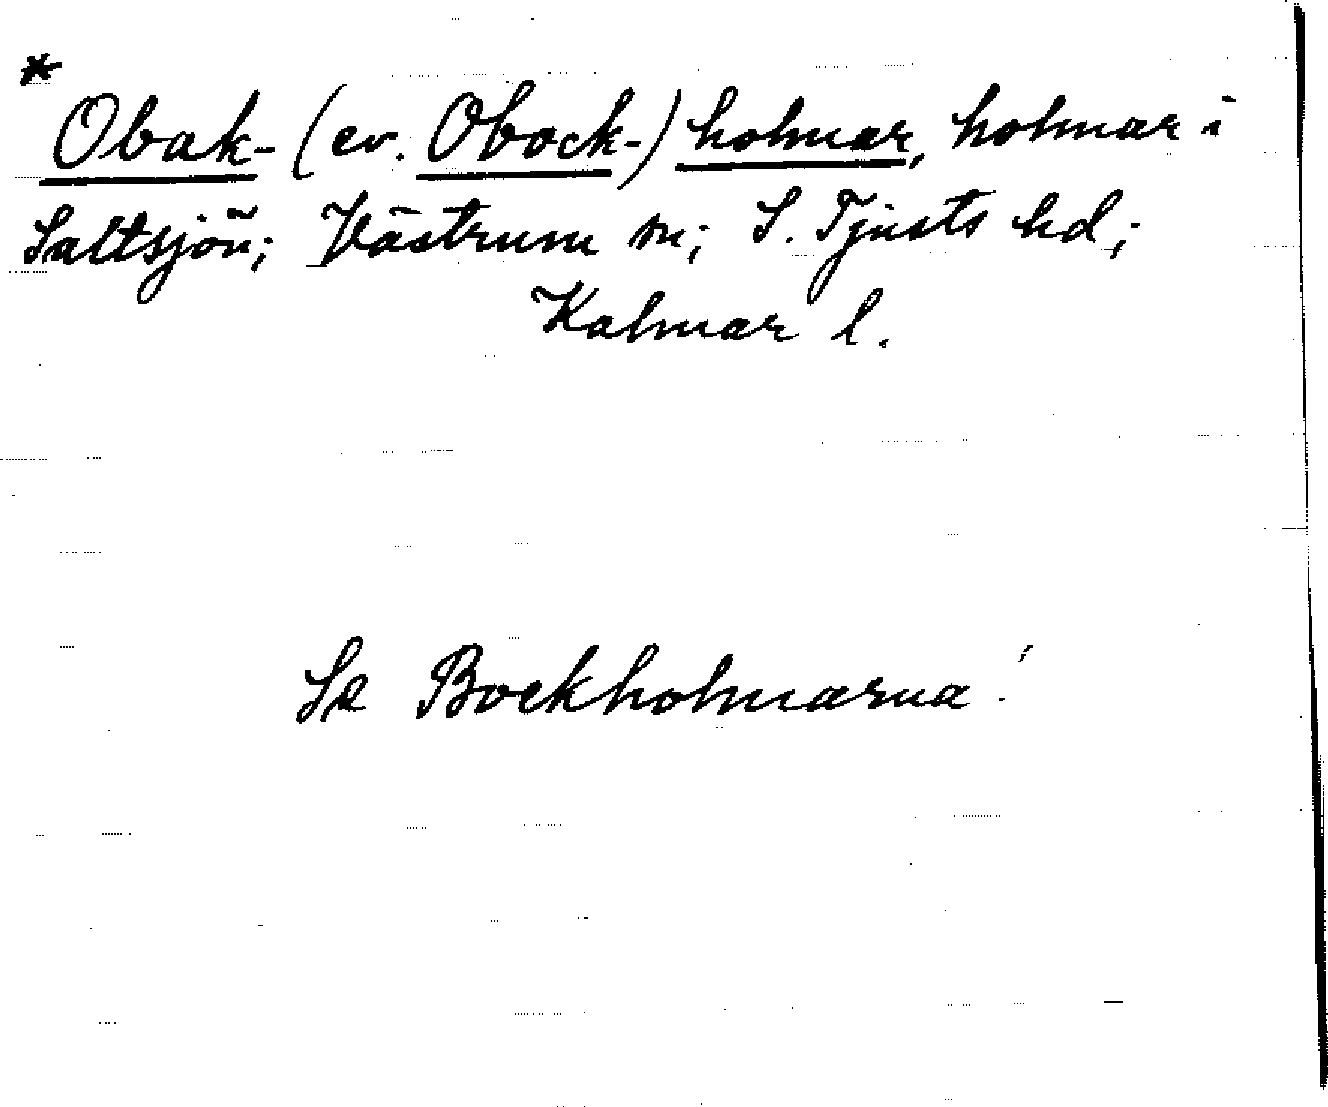 *
Obak- (ev. Obock-) holmar, holmar i
Saltsjön; Västrum sn; S. Tjusts hd;
Kalmar l.
Se Bockholmarna!